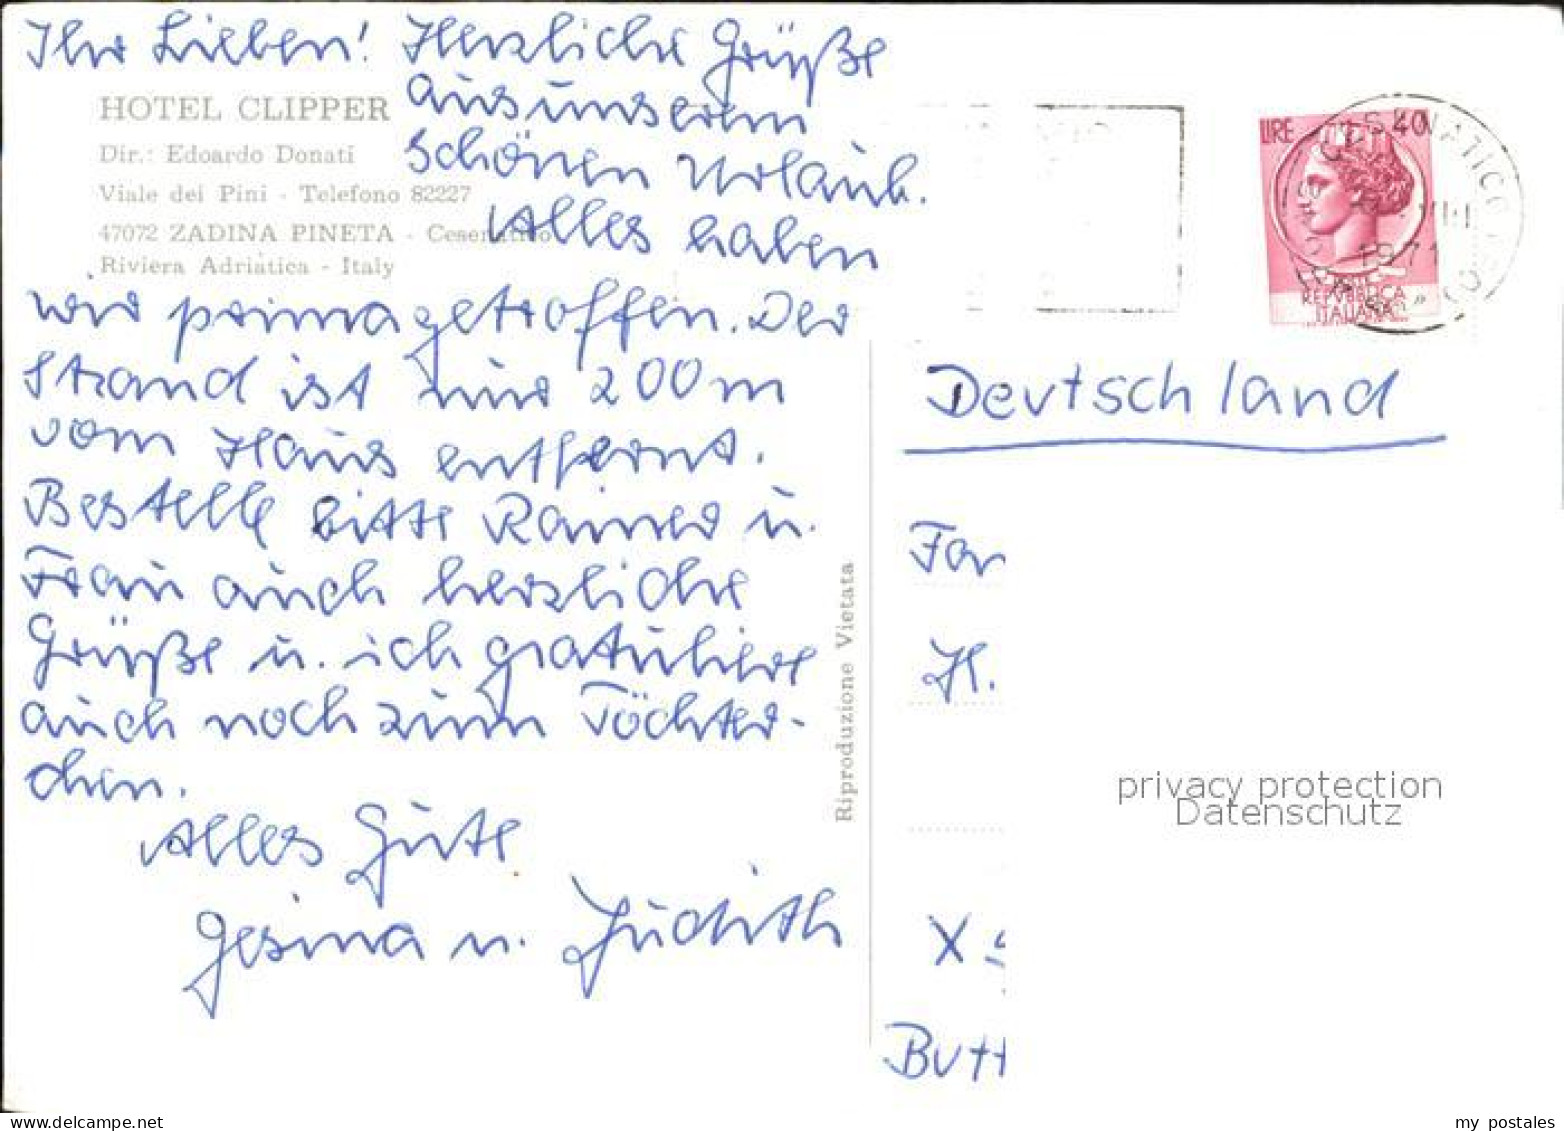 Ihr Lieben! Herzliche Grüße
aus unserem
schönen Urlaub.
Alles haben
wir prima getroffen. Der
Strand ist nur 200 m
vom Haus entfernt.
Bestelle bitte Rainer u.
Frau auch herzliche
Grüße u. ich gratuliere
auch noch zum Töchter-
chen.
Alles Gute
Gesina u. Judith
HOTEL CLIPPER
Dir.: Edoardo Donati
Viale dei Pini - Telefono 82227
47072 ZADINA PINETA - Cesenatico
Riviera Adriatica - Italy
Riproduzione Vietata
LIRE 40
REPVBBLICA
ITALIANA
1971
Deutschland
Fam
H.
X
Butt
privacy protection
Datenschutz
my postales